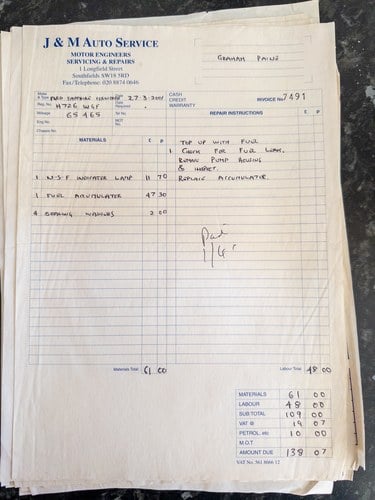 J & M AUTO SERVICE
MOTOR ENGINEERS
SERVICING & REPAIRS
1 Longfield Street
Southfields SW18 5RD
Fax/Telephone: 020 8874 0646
GRAHAM PAINE
Make & Type
Date 27-3-2001
CASH
CREDIT
WARRANTY
INVOICE No. 7491
Reg. No. H726 WGF
Date Required
Mileage 65465
Tel No:
Eng No.
MOT
Chassis No:
REPAIR INSTRUCTIONS
MATERIALS £ P
TOP UP WITH FUEL
1 CHECK FOR FUEL LEAK.
PUMP HOUSING
&
1 N-S-F INDICATOR LAMP 11 70
REPLACE ACCUMULATOR.
1 FUEL ACCUMULATOR 47 30
4 SEALING WASHERS 2 00
Paid
1/4
Materials Total: 61 00
Labour Total: 48 00
MATERIALS 61 00
LABOUR 48 00
SUB TOTAL 109 00
VAT @ 19 07
PETROL, etc 10 00
M.O.T.
AMOUNT DUE 138 07
VAT No. 561 8066 12